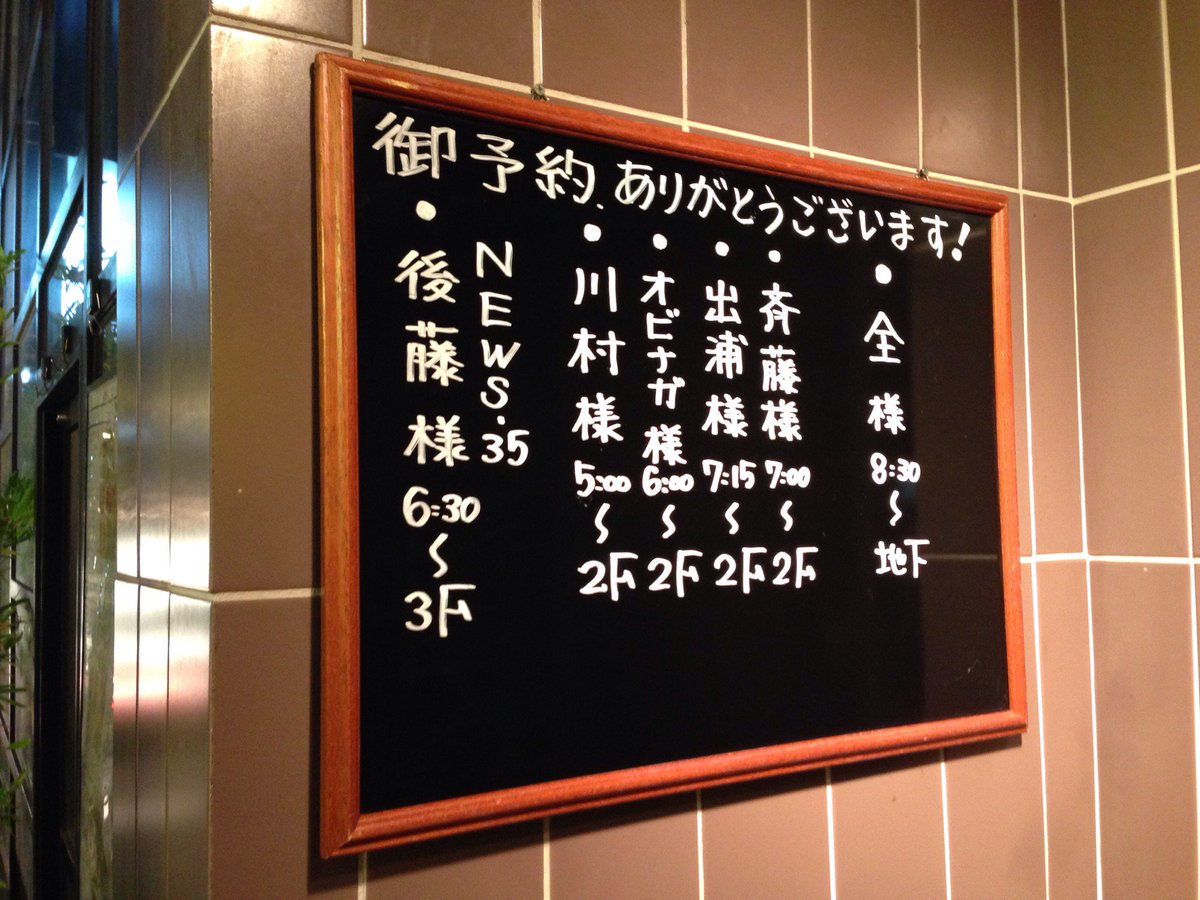 御予約ありがとうございます!
・全様 8:30 〜 地下
・斉藤様 7:00 〜 2F
・出浦様 7:15 〜 2F
・オビナガ様 6:00 〜 2F
・川村様 5:00 〜 2F
NEWS.35
・後藤様 6:30 〜 3F